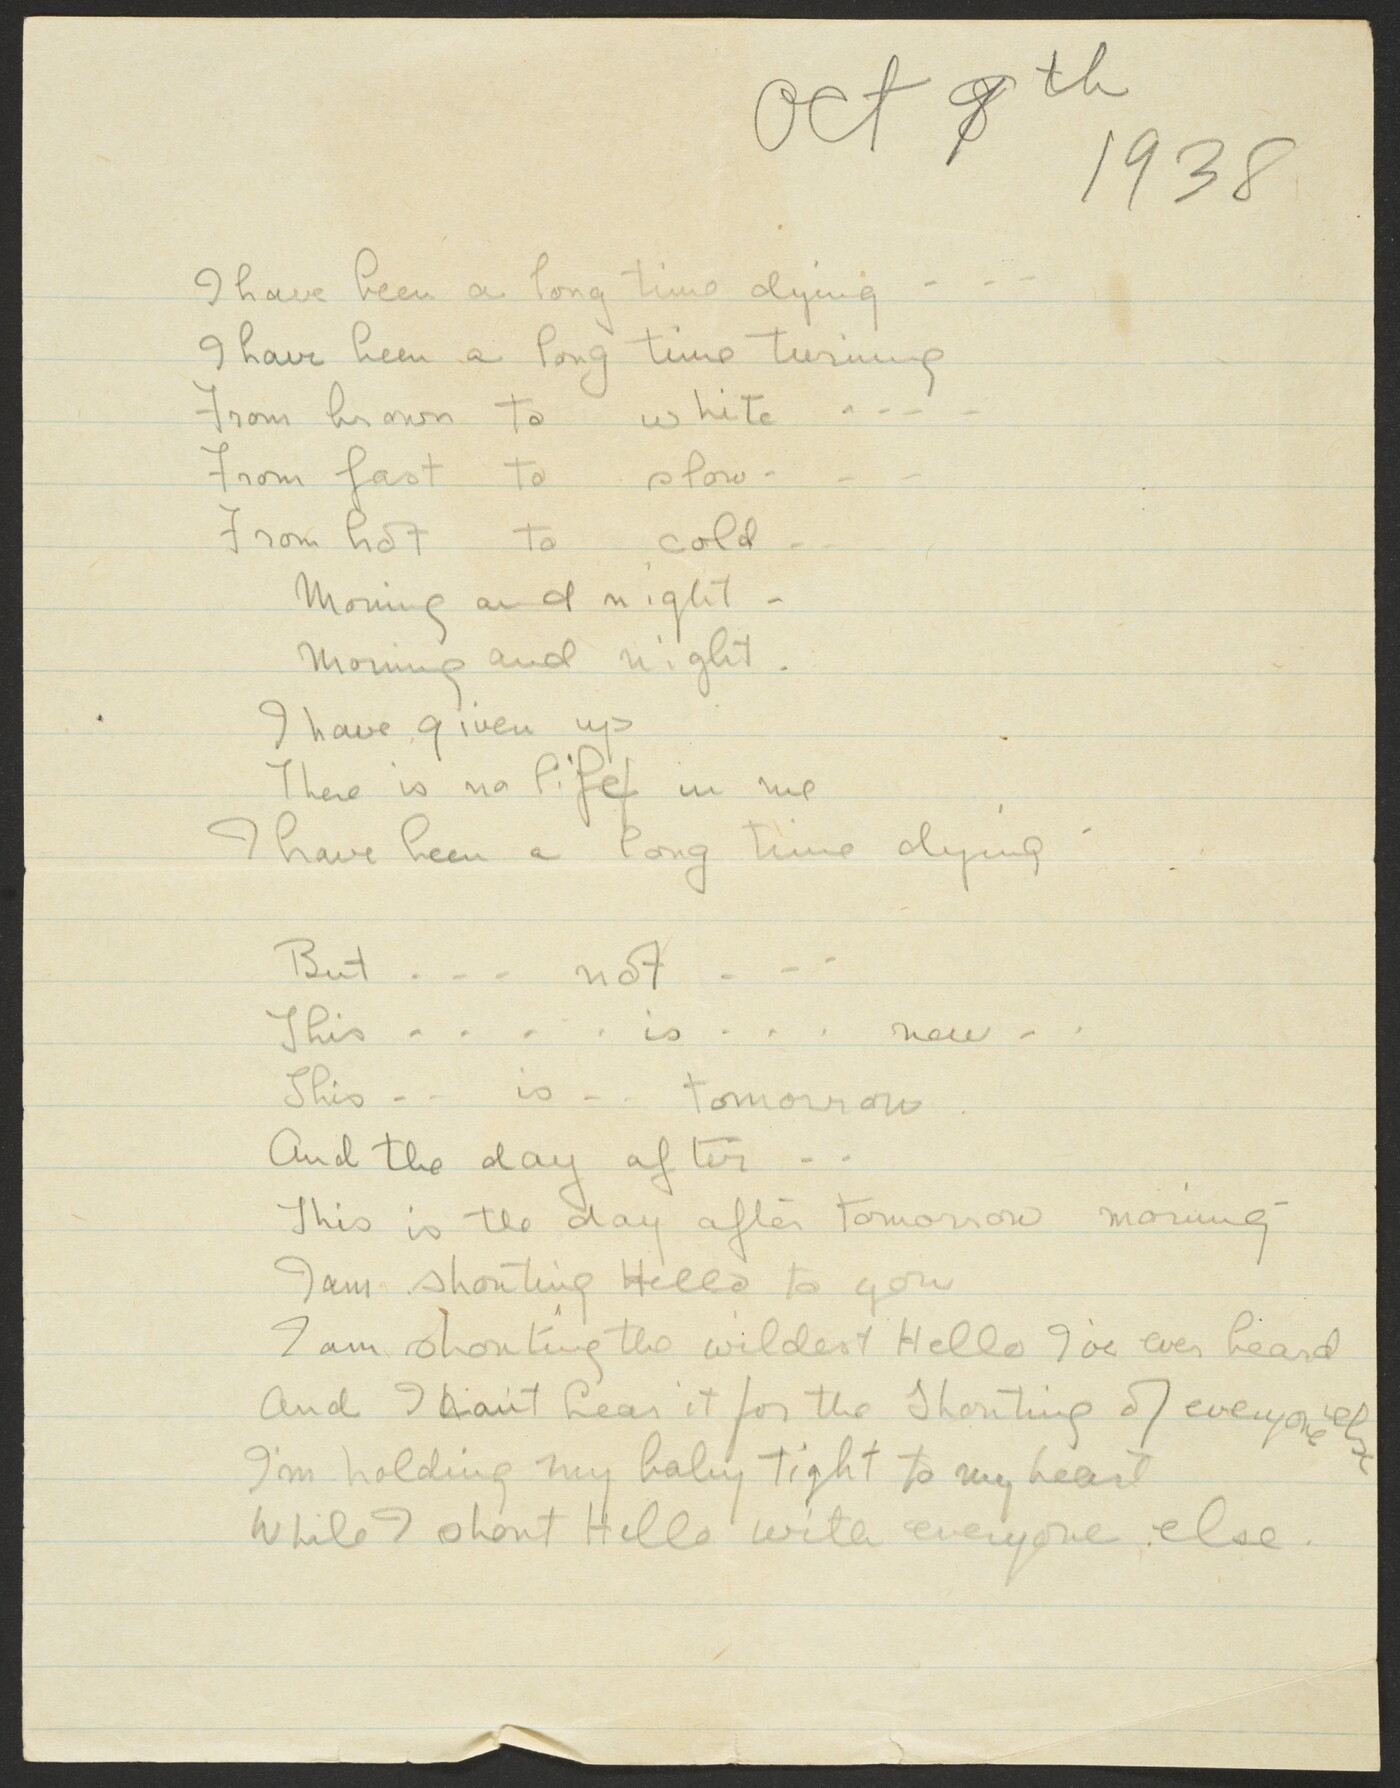 Oct 8th
1938
I have been a long time dying - - -
I have been a long time turning
From brown to white - - - -
From fast to slow - - -
From hot to cold - -
Morning and night -
Morning and night.
I have given up
There is no life in me
I have been a long time dying -
But - - - not - - -
This - - - - is - - - new - -
This - - is - - tomorrow.
And the day after - -
This is the day after tomorrow morning -
I am shouting Hello to you
I am shouting the wildest Hello I've ever heard
And I can't hear it for the shouting of everyone else
I'm holding my baby tight to my heart
While I shout Hello with everyone else.